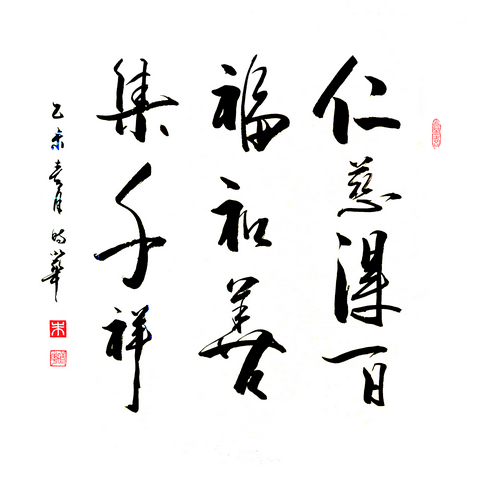 仁慈得百
福和善
集千祥
乙未春月時華
朱